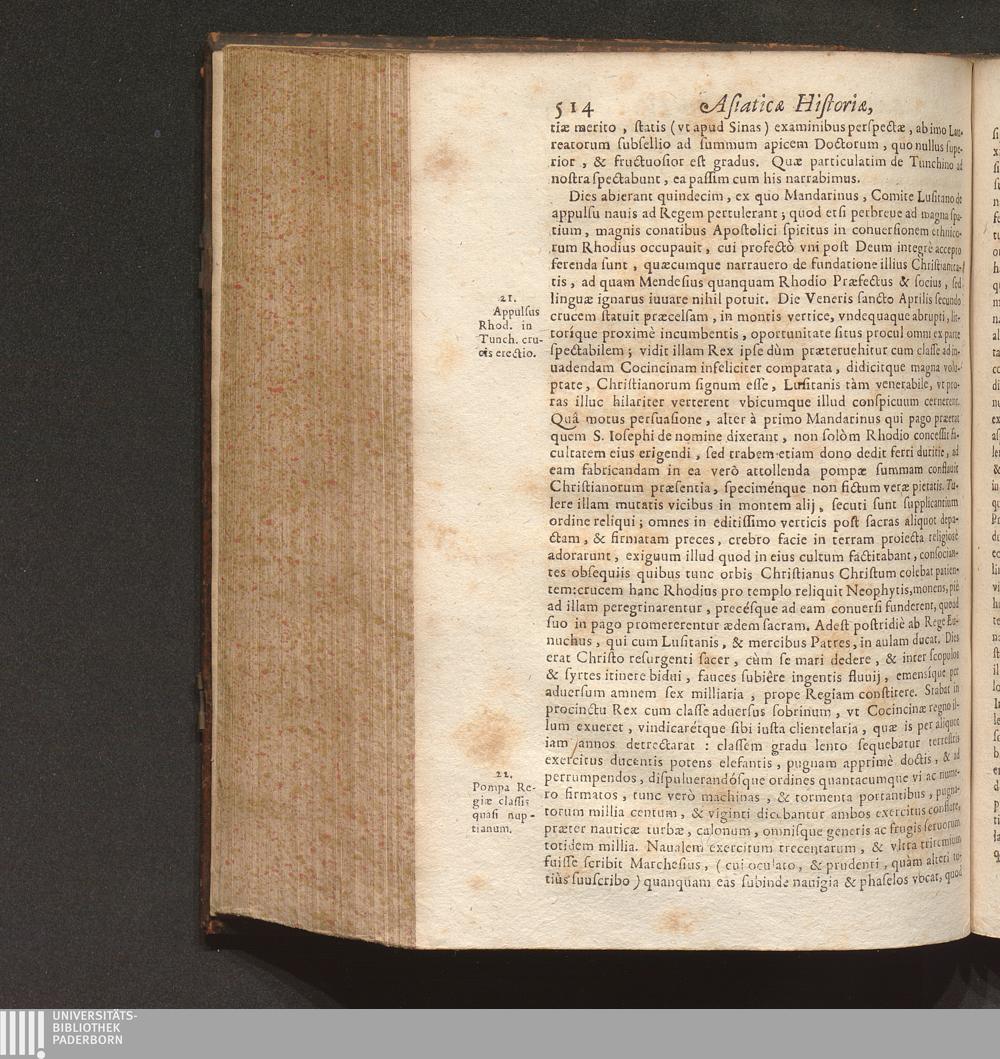 514 Asiaticæ Historiæ,
tiæ merito, statis (vt apud Sinas) examinibus perspectæ, ab imo Lau-
reatorum subsellio ad summum apicem Doctorum, quo nullus supe-
rior, & fructuosior est gradus. Quæ particulatim de Tunchino ad
nostra spectabunt, ea passim cum his narrabimus.
Dies abierant quindecim, ex quo Mandarinus, Comite Lusitano de
appulsu nauis ad Regem pertulerant; quod etsi perbreue ad magna spa-
tium, magnis conatibus Apostolici spiritus in conuersionem ethnico-
rum Rhodius occupauit, cui profectò vni post Deum integrè accepto
ferenda sunt, quæcumque narrauero de fundatione illius Christianita-
tis, ad quam Mendesius quanquam Rhodio Præfectus & socius, sed
linguæ ignarus iuuare nihil potuit. Die Veneris sancto Aprilis secundo
21.
Appulsus
Rhod. in
Tunch. cru-
cis erectio.
crucem statuit præcelsam, in montis vertice, vndequaque abrupti, lit-
torique proximè incumbentis, oportunitate situs procul omni ex parte
spectabilem; vidit illam Rex ipse dùm præteruehitur cum classe ad in-
uadendam Cocincinam infeliciter comparata, didicitque magna volu-
ptate, Christianorum signum esse, Lusitanis tàm venerabile, vt pro-
ras illuc hilariter verterent vbicumque illud conspicuum cernerent.
Quâ motus persuasione, alter à primo Mandarinus qui pago præerat
quem S. Iosephi de nomine dixerant, non solòm Rhodio concessit fa-
cultatem eius erigendi, sed trabem etiam dono dedit ferri duritie, ad
eam fabricandam in ea verò attollenda pompæ summam conflauit
Christianorum præsentia, speciménque non fictum veræ pietatis. Tu-
lere illam mutatis vicibus in montem alij, secuti sunt supplicantium
ordine reliqui; omnes in editissimo verticis post sacras aliquot depa-
ctam, & firmatam preces, crebro facie in terram proiecta religiosè
adorarunt, exiguum illud quod in eius cultum factitabant, consocian-
tes obsequiis quibus tunc orbis Christianus Christum colebat patien-
tem: crucem hanc Rhodius pro templo reliquit Neophytis, monens, piè
ad illam peregrinarentur, precésque ad eam conuersi funderent, quoad
suo in pago promererentur ædem sacram. Adest postridiè ab Rege Eu-
nuchus, qui cum Lusitanis, & mercibus Patres, in aulam ducat. Dies
erat Christo resurgenti sacer, cùm se mari dedere, & inter scopulos
& syrtes itinere bidui, fauces subière ingentis fluuij, emensique per
aduersum amnem sex milliaria, prope Regiam constitere. Stabat in
procinctu Rex cum classe aduersus sobrinum, vt Cocincinæ regno il-
lum exueret, vindicarétque sibi iusta clientelaria, quæ is per aliquot
iam annos detrectarat: classem gradu lento sequebatur terrestris
exercitus ducentis potens elefantis, pugnam apprimè doctis, & ad
22.
Pompa Re-
giæ classis
quasi nup-
tianum.
perrumpendos, dispuluerandósque ordines quantacumque vi ac nume-
ro firmatos, tunc verò machinas, & tormenta portantibus, pugna-
torum millia centum, & viginti dicebantur ambos exercitus conflare,
præter nauticæ turbæ, calonum, omnisque generis ac frugis seruorum
totidem millia. Naualem exercitum trecentarum, & vltra triremium
fuisse scribit Marchesius, (cui oculato, & prudenti, quàm alteri to-
tiùs suuscribo) quanquam eas subinde nauigia & phaselos vocat, quod
UNIVERSITÄTS-
BIBLIOTHEK
PADERBORN